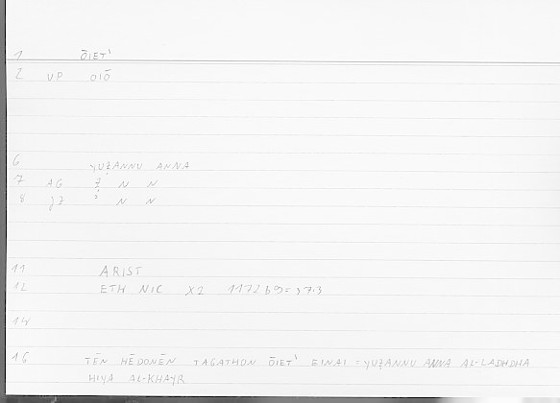 1 ŌIET'
2 VP OIŌ
6 YUẒANNU ANNA
7 AG Ẓ N N
8 JZ 3 N N
11 ARIST
12 ETH NIC X2 1172b9 = 37.3
14
16 TĒN HĒDONĒN TAGATHON ŌIET' EINAI = YUẒANNU ANNA AL-LADHDHA
HIYA AL-KHAYR